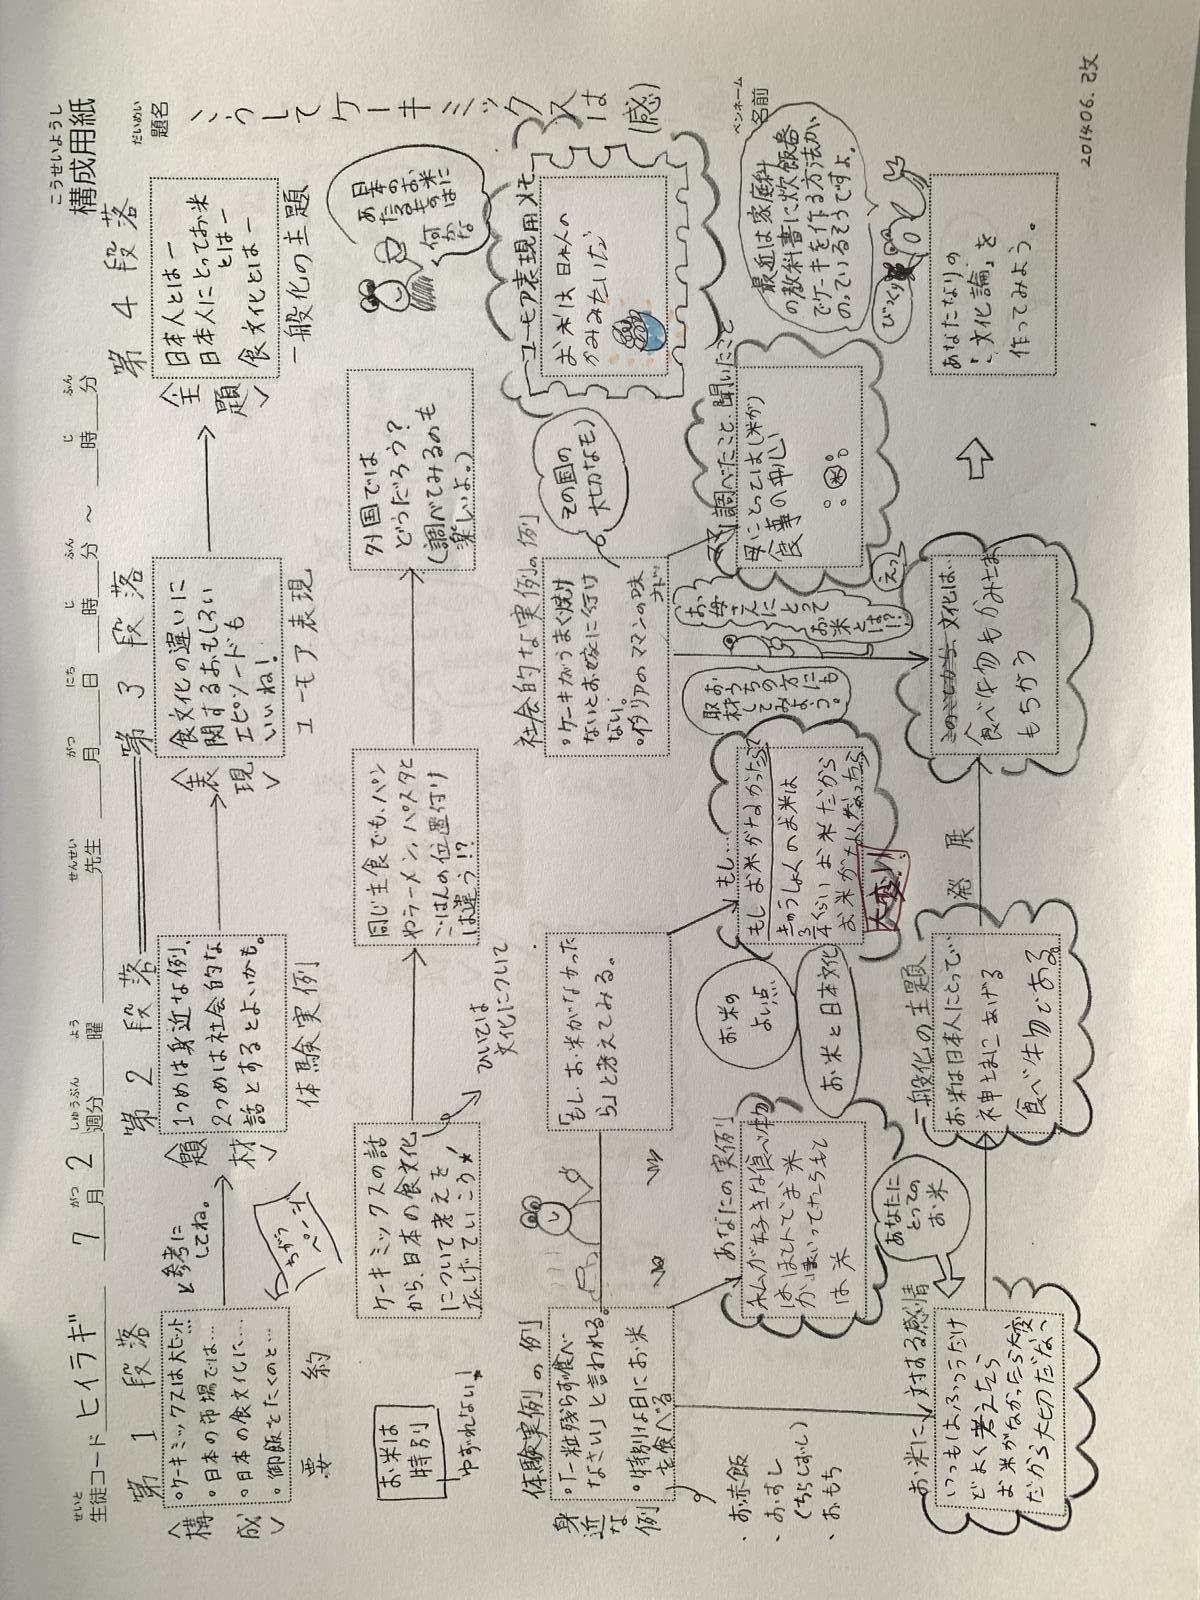 こうせいようし
構成用紙
せいと
生徒コード ヒイラギ 7 がつ 月 2 しゅうぶん 週分 よう 曜 せんせい 先生 がつ 月 にち 日 じ 時 ふん 分 〜 じ 時 ふん 分
だいめい
題名
こうしてケーキミックスは
(感)
ペンネーム
名前
第1段落
第2段落
第3段落
第4段落
〈構成〉
・ケーキミックスは大ヒット
・日本の市場では…
・日本の食文化に…
・御飯をたくのと…
要約
と参考に
してね。
ちがう
ページ
〈題材〉
1つめは身近な例、
2つめは社会的な
話とするとよいかも。
体験実例
〈表現〉
食文化の違いに
関するおもしろい
エピソードも
いいね!
ユーモア表現
〈主題〉
日本人とはー
日本人にとってお米
とはー
食文化とはー
一般化の主題
お米は
特別
ゆずれない!
ケーキミックスの話
から、日本の食文化
について考えを
広げていこう★
ひいては
文化について
同じ主食でも、パン
やラーメン、パスタと
ごはんの位置付け
は違う!?
外国では
どうだろう?
(調べてみるのも
楽しいよ。)
日本の
お米に
あたる
ものは
何かな
体験実例の例
身近な例
・「一粒残らず食べ
なさい」と言われる。
・特別な日にお米
を食べる
・お赤飯
・おすし
(ちらしずし)
・おもち
「もし、お米がなかった
ら」と考えてみる。
社会的な実例の例
・ケーキがうまく焼け
ないとお嫁に行け
ない。
・イタリアのママンの味
その国の
大切なモノ
ユーモア表現用メモ
お米は日本人の
かみみたいだ
あなたの実例
私が好きな食べ物
はほとんどお米
お米の
よい点
お米と日本文化
もし…
もしお米がなかったら
きゅうしょくのお米は
3/4くらいお米だから
お米がなくなっちゃう
大変!!
取材してみよう。
おうちの方にも
お母さんに
とって
お米とは!?
えっ
調べたこと、聞いたこと
母にとってはし(米が)
食事の中心
米
最近は家庭科
の教科書に炊飯器
でケーキを作る方法が
のっているそうですよ。
びっくり
お米に対する感情
いつもはふつうだけ
どよく考えたら
お米がなかったら大変
だから大切だな〜
あなたに
とっての
お米
一般化の主題
お米は日本人にとって
神さまにあげる
食べ物である
発展
文化は
食べ物もかみさま
もちがう
あなたなりの
「文化論」を
作ってみよう。
201406.改